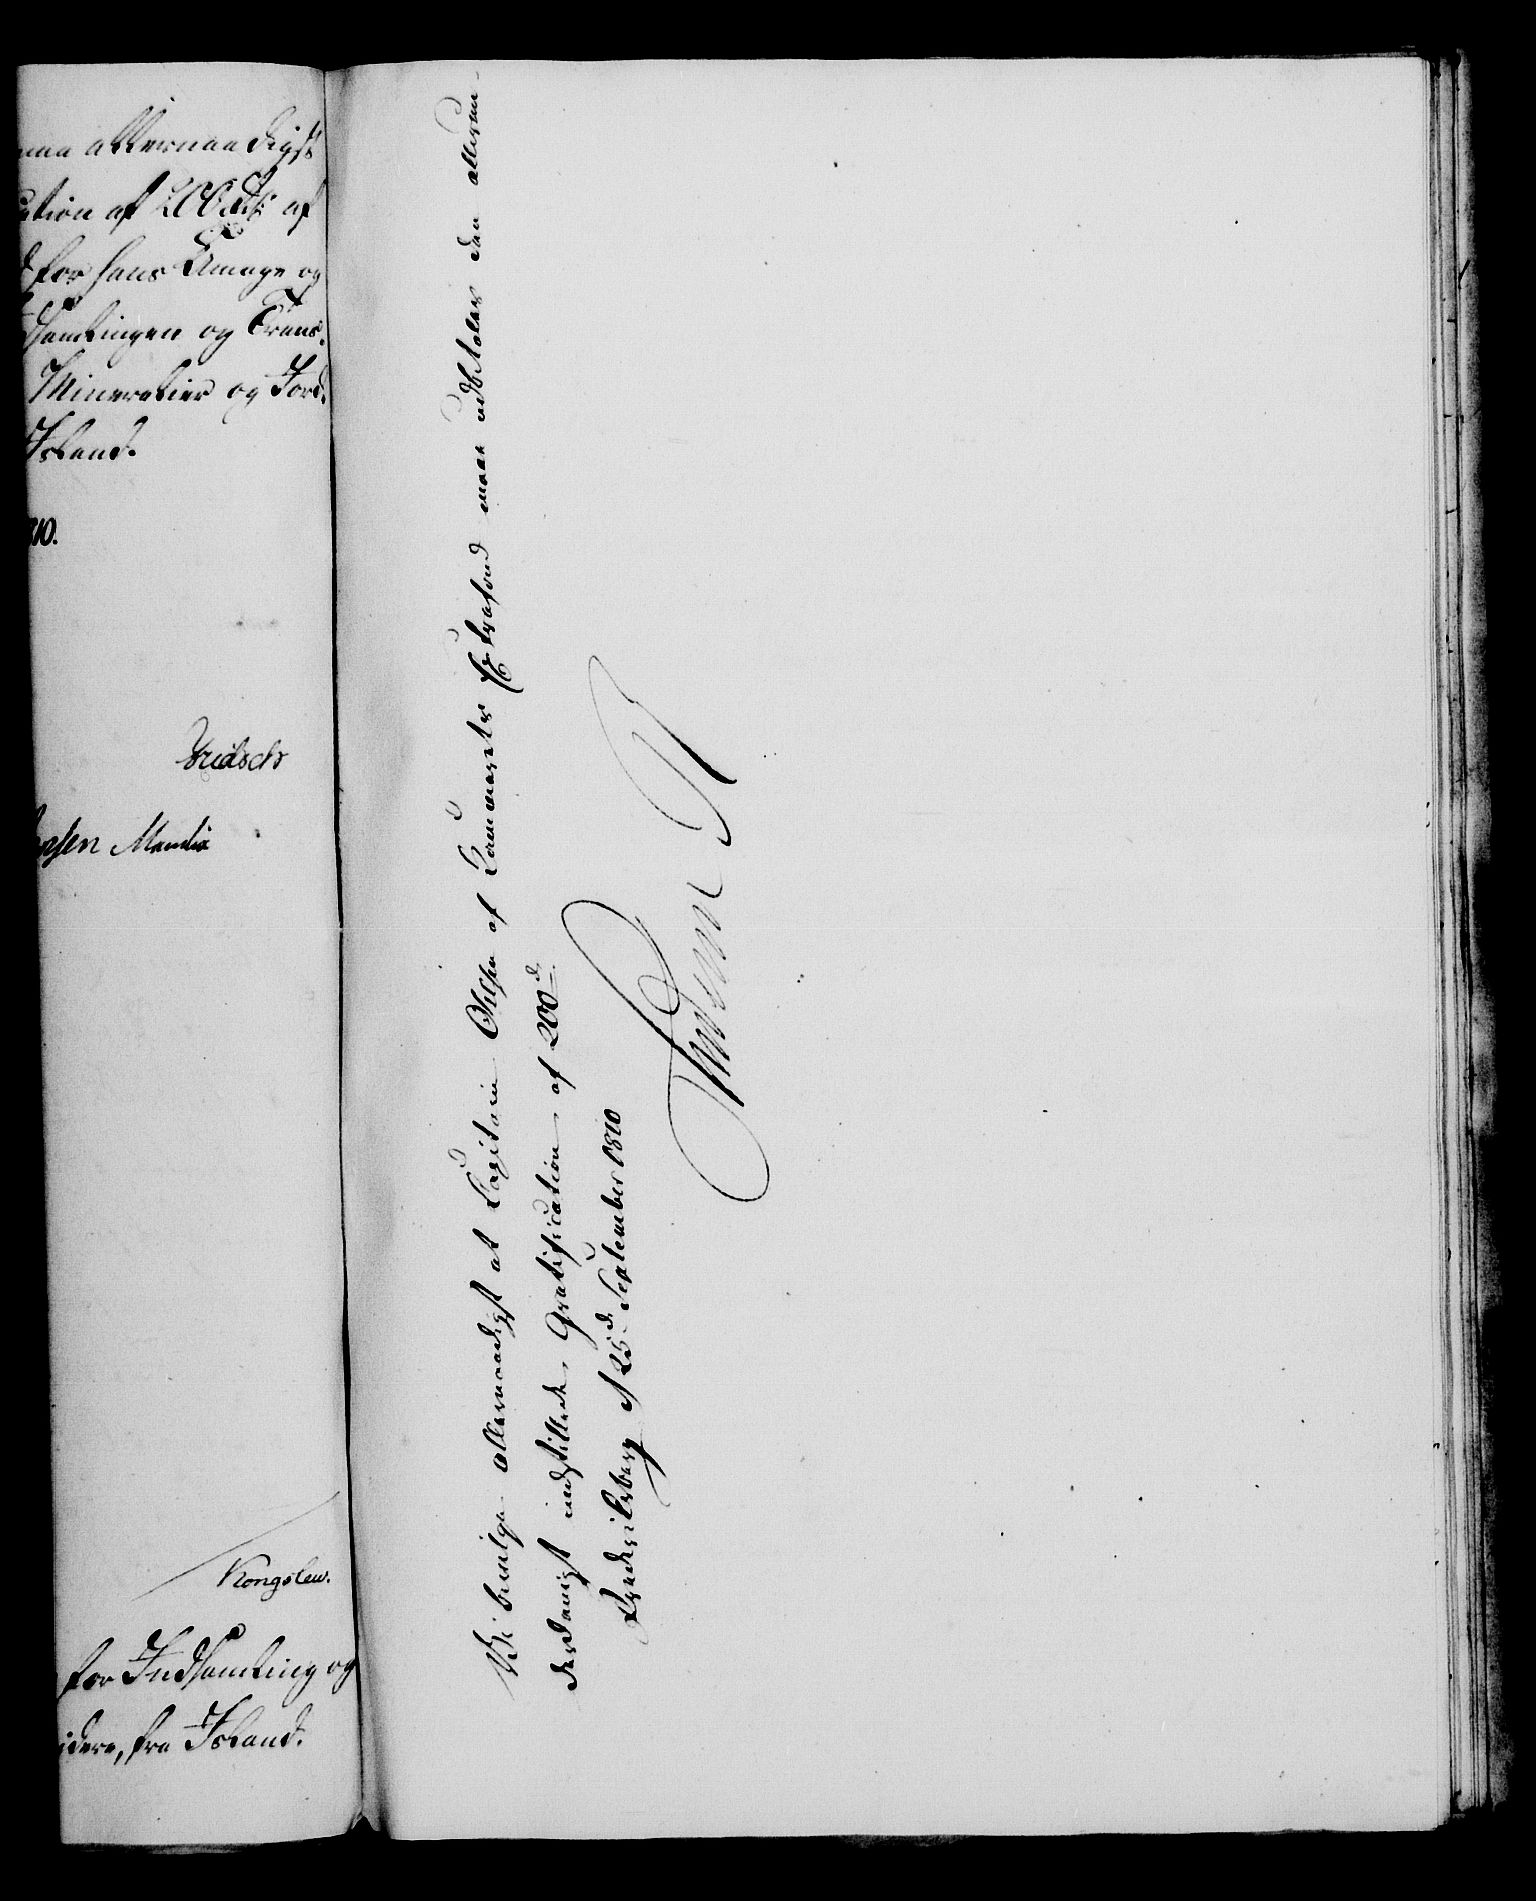 maa allernaadigst
cation af 200 Rdlr: af
for hans Umage og
dsamlingen og Trans-
Mineralier og Jord-
Island.
810.
Mandix
Kongslew.
for Indsamling og
videre, fra Island.
Vi bevilge allernaadigst at Capitain Ohlsen af Cammerets Extrafond maae udbetales den allerun-
derdanigst indstillede Gratification af 200 d.
Frederiksberg d 25 d. September 1810
Frederik R